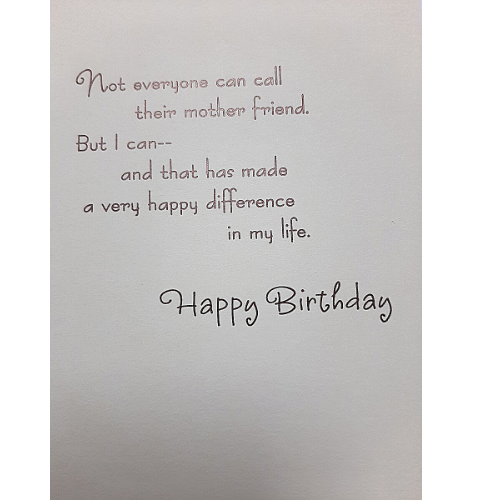 Not everyone can call
their mother friend.
But I can--
and that has made
a very happy difference
in my life.
Happy Birthday